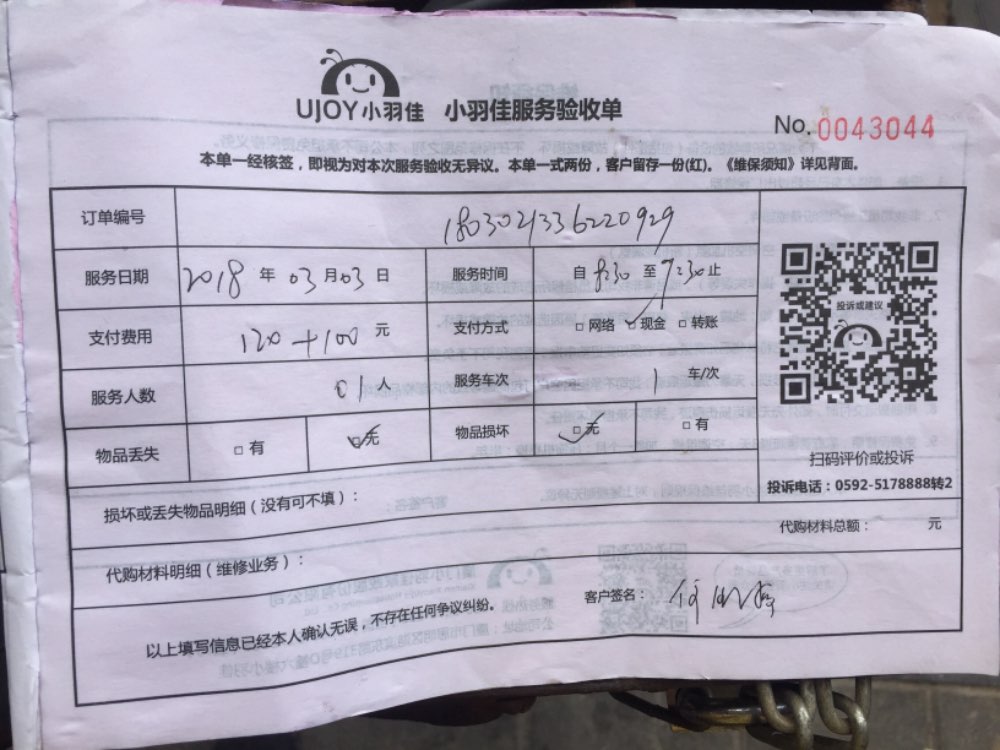 UJOY小羽佳 小羽佳服务验收单
No. 0043044
本单一经核签，即视为对本次服务验收无异议。本单一式两份，客户留存一份(红)。《维保须知》详见背面。
订单编号 1803021336220929
服务日期 2018 年 03 月 03 日 服务时间 自 8:30 至 9:30 止
支付费用 120+100 元 支付方式 □网络 ☑现金 □转账
服务人数 01人 服务车次 1 车/次
物品丢失 □有 ☑无 物品损坏 ☑无 □有
投诉或建议
扫码评价或投诉
投诉电话：0592-5178888转2
损坏或丢失物品明细（没有可不填）：
代购材料总额： 元
代购材料明细（维修业务）：
客户签名：
以上填写信息已经本人确认无误，不存在任何争议纠纷。